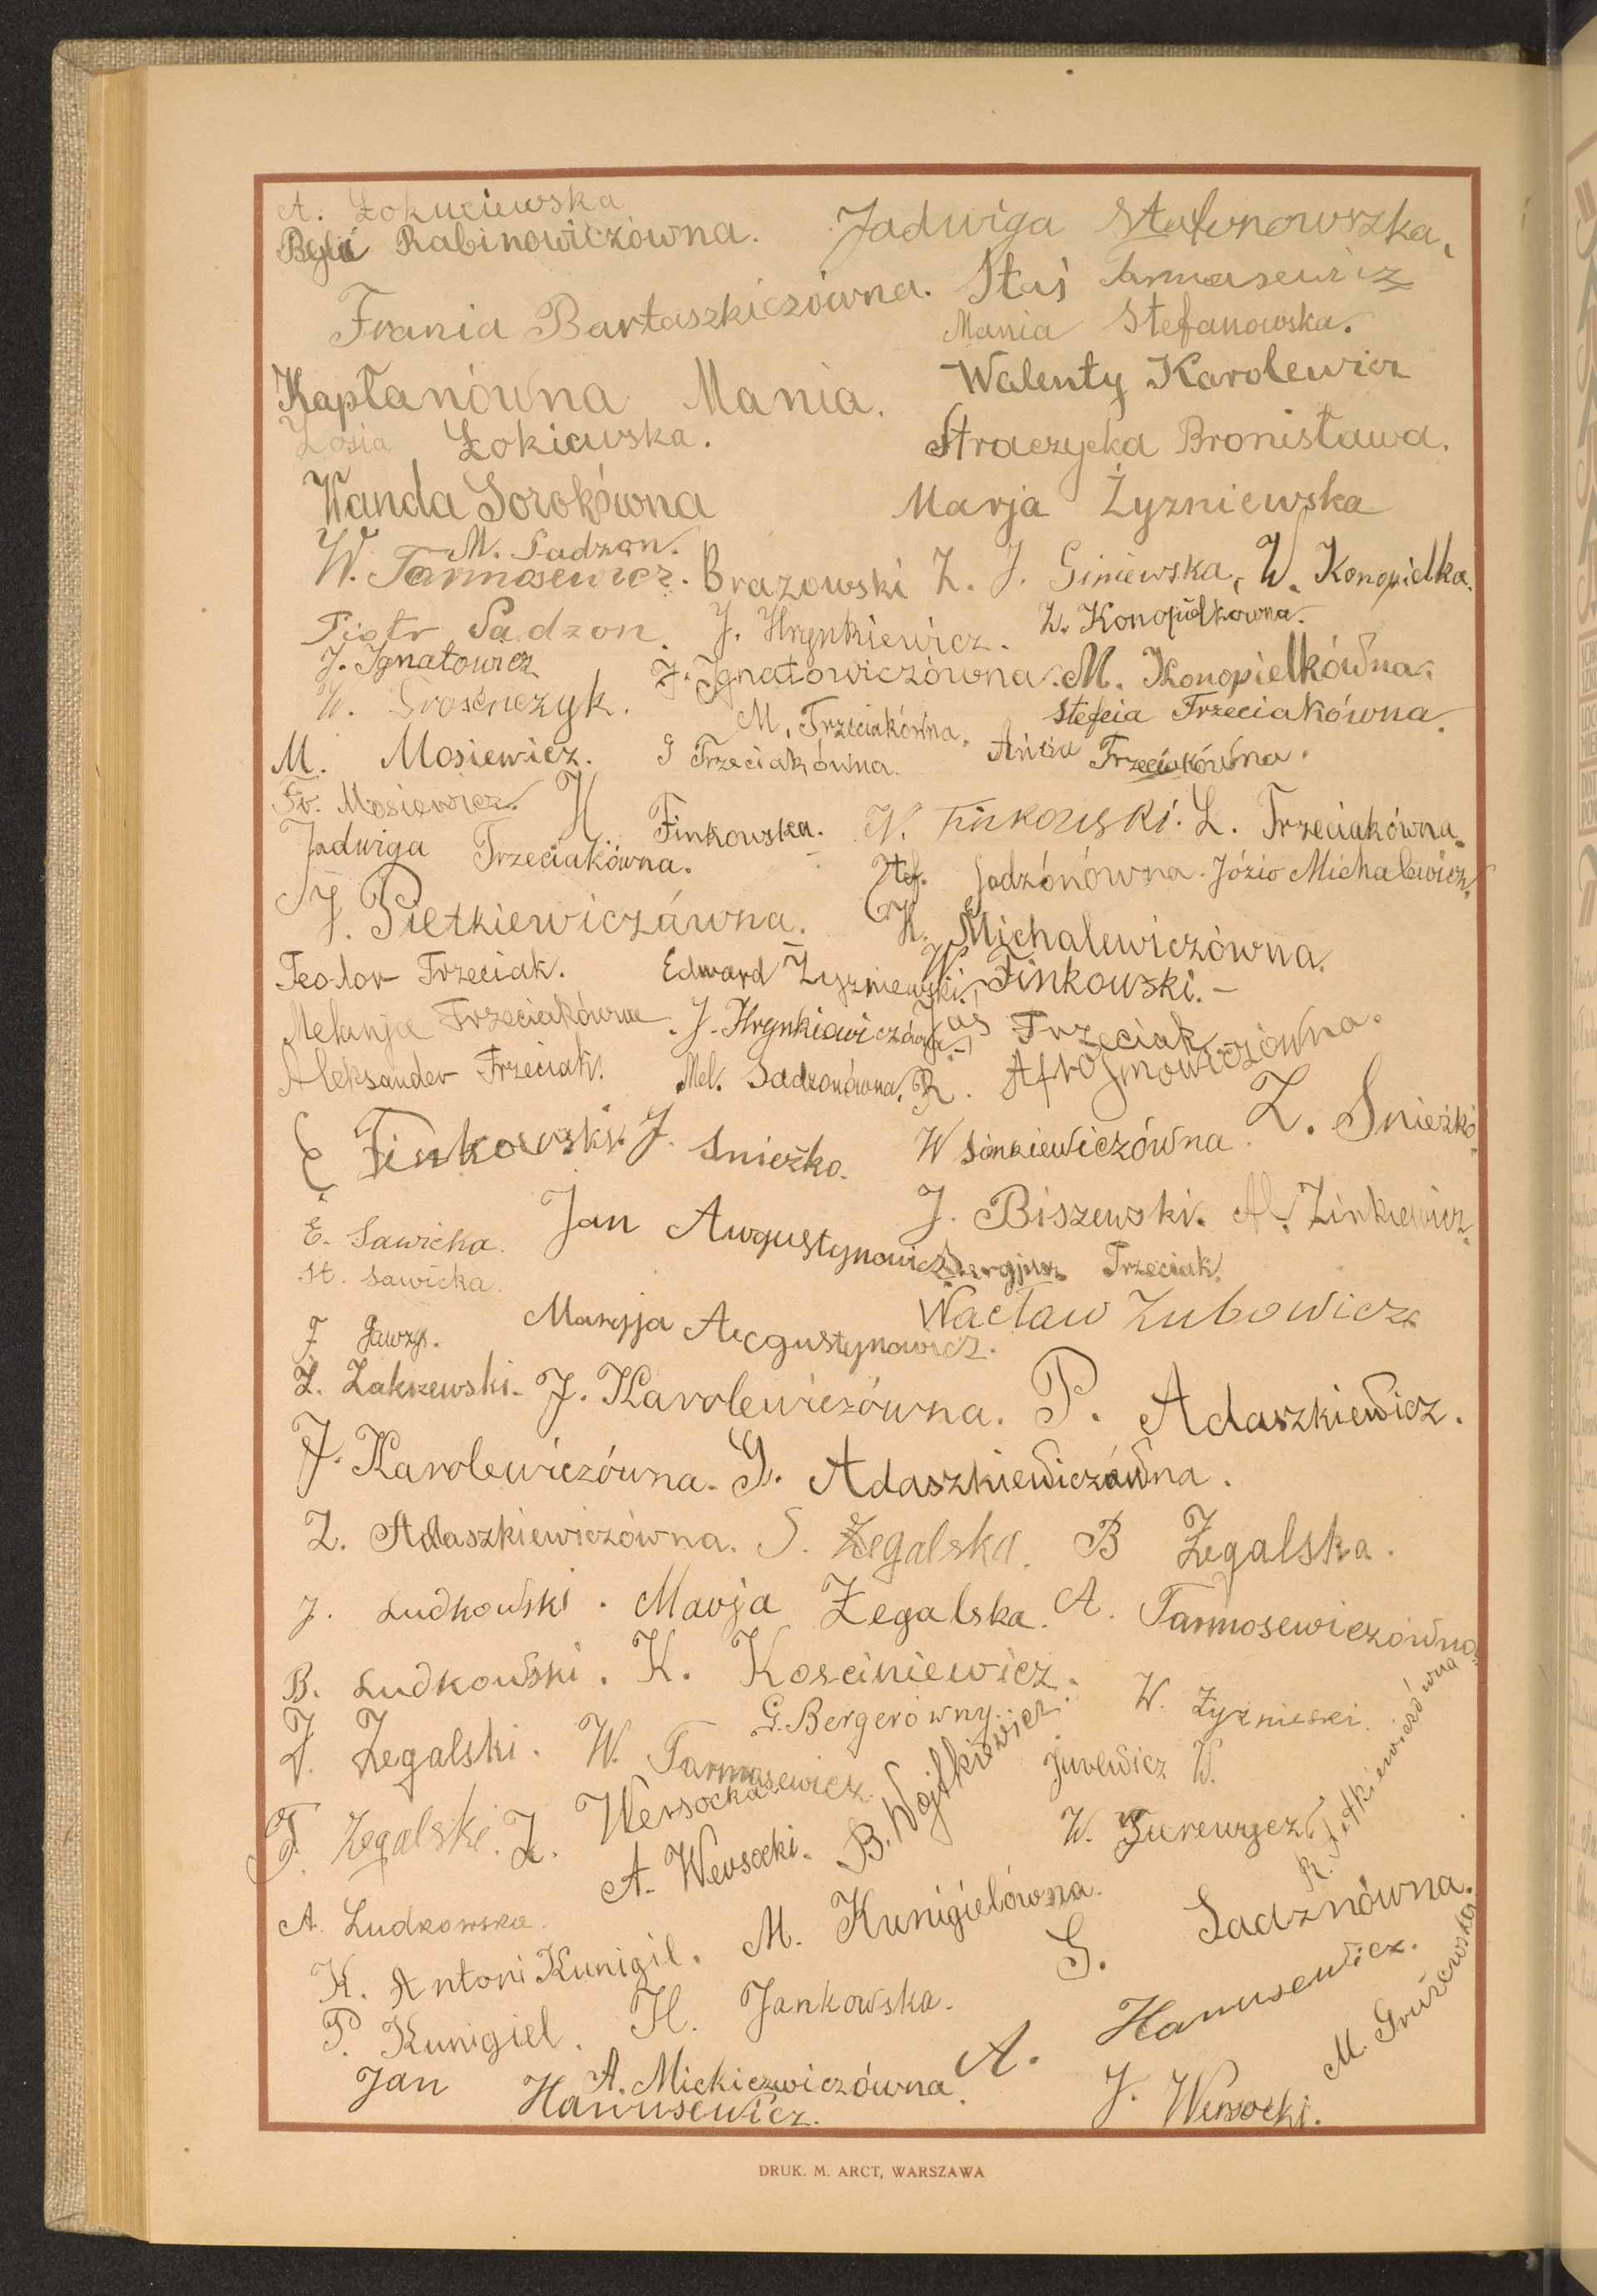 A. Łokuciewska
Bejla Rabinowiczówna. Jadwiga Stefonowszka,
Frania Bartaszkiczówna. Staś Tarmasewicz
Mania Stefanowska.
Kapłanówna Mania. Walenty Karolewicz
Zosia Łokiewska. Straczycka Bronisława.
Wanda Sorokówna Marja Żyzniewska
M. Sadzon.
W. Tarmosewicz. Brazowski Z. J. Giniewska, W. Konopielka.
Piotr Sadzon. J. Hrynkiewicz. W. Konopielkowna.
J. Ignatowicz J. Ignatowiczówna. M. Konopielkówna.
W. Trosenczyk. M. Trzeciakówna. Stefcia Trzeciakówna.
M. Mosiewicz. G Trzeciakówna. Ańcia Trzeciakówna.
Fr. Mosiewicz. H. Finkowska. W. Finkowski. L. Trzeciakówna.
Jadwiga Trzeciakówna. Stef. Sadzónówna. Józio Michalewicz.
J. Pietkiewiczówna. H. Michalewiczówna.
Teodor Trzeciak. Edward Żyzniewski. W. Finkowski.
Melanja Trzeciakówna. J. Hrynkiewiczówna. Jaś Trzeciak
Aleksander Trzeciak. Mel. Sadzonówna. R. Afrojmowiczówna.
E. Finkowski. J. Snieżko. W Sienkiewiczówna. Z. Snieżko.
E. Sawicka. Jan Augustynowicz. J. Biszewski. Al. Zinkiewicz.
St. Sawicka. Trzeciak.
F. Gawzys. Maryja Acgustynowicz. Wacław Zubowicz.
Z. Zakrzewski. J. Karolewiczówna. P. Adaszkiewicz.
J. Karolewiczówna. G. Adaszkiewiczówna.
Z. Adaszkiewiczówna. S. Żegalska. B Żegalska.
J. Ludkowski. Marja Żegalska. A. Tarmosewiczówna.
B. Ludkowski. K. Kosciniewicz.
G. Bergerówny. W. Zyznieski.
J. Żegalski. W. Tarmasewicz. Jurewicz W.
F. Żegalski. Z. Wersocka B. Wojtkiewicz.
A. Wersocki. W. Jurewycz. R. Pietkiewiczówna
A. Ludkowska.
K. Antoni Kunigil. M. Kunigielówna. S. Sadznówna.
P. Kunigiel. H. Jankowska. A. Hanusewicz.
Jan Hanusewicz. A. Mickiewiczówna. J. Wersocki. M. Gružewska
DRUK. M. ARCT, WARSZAWA